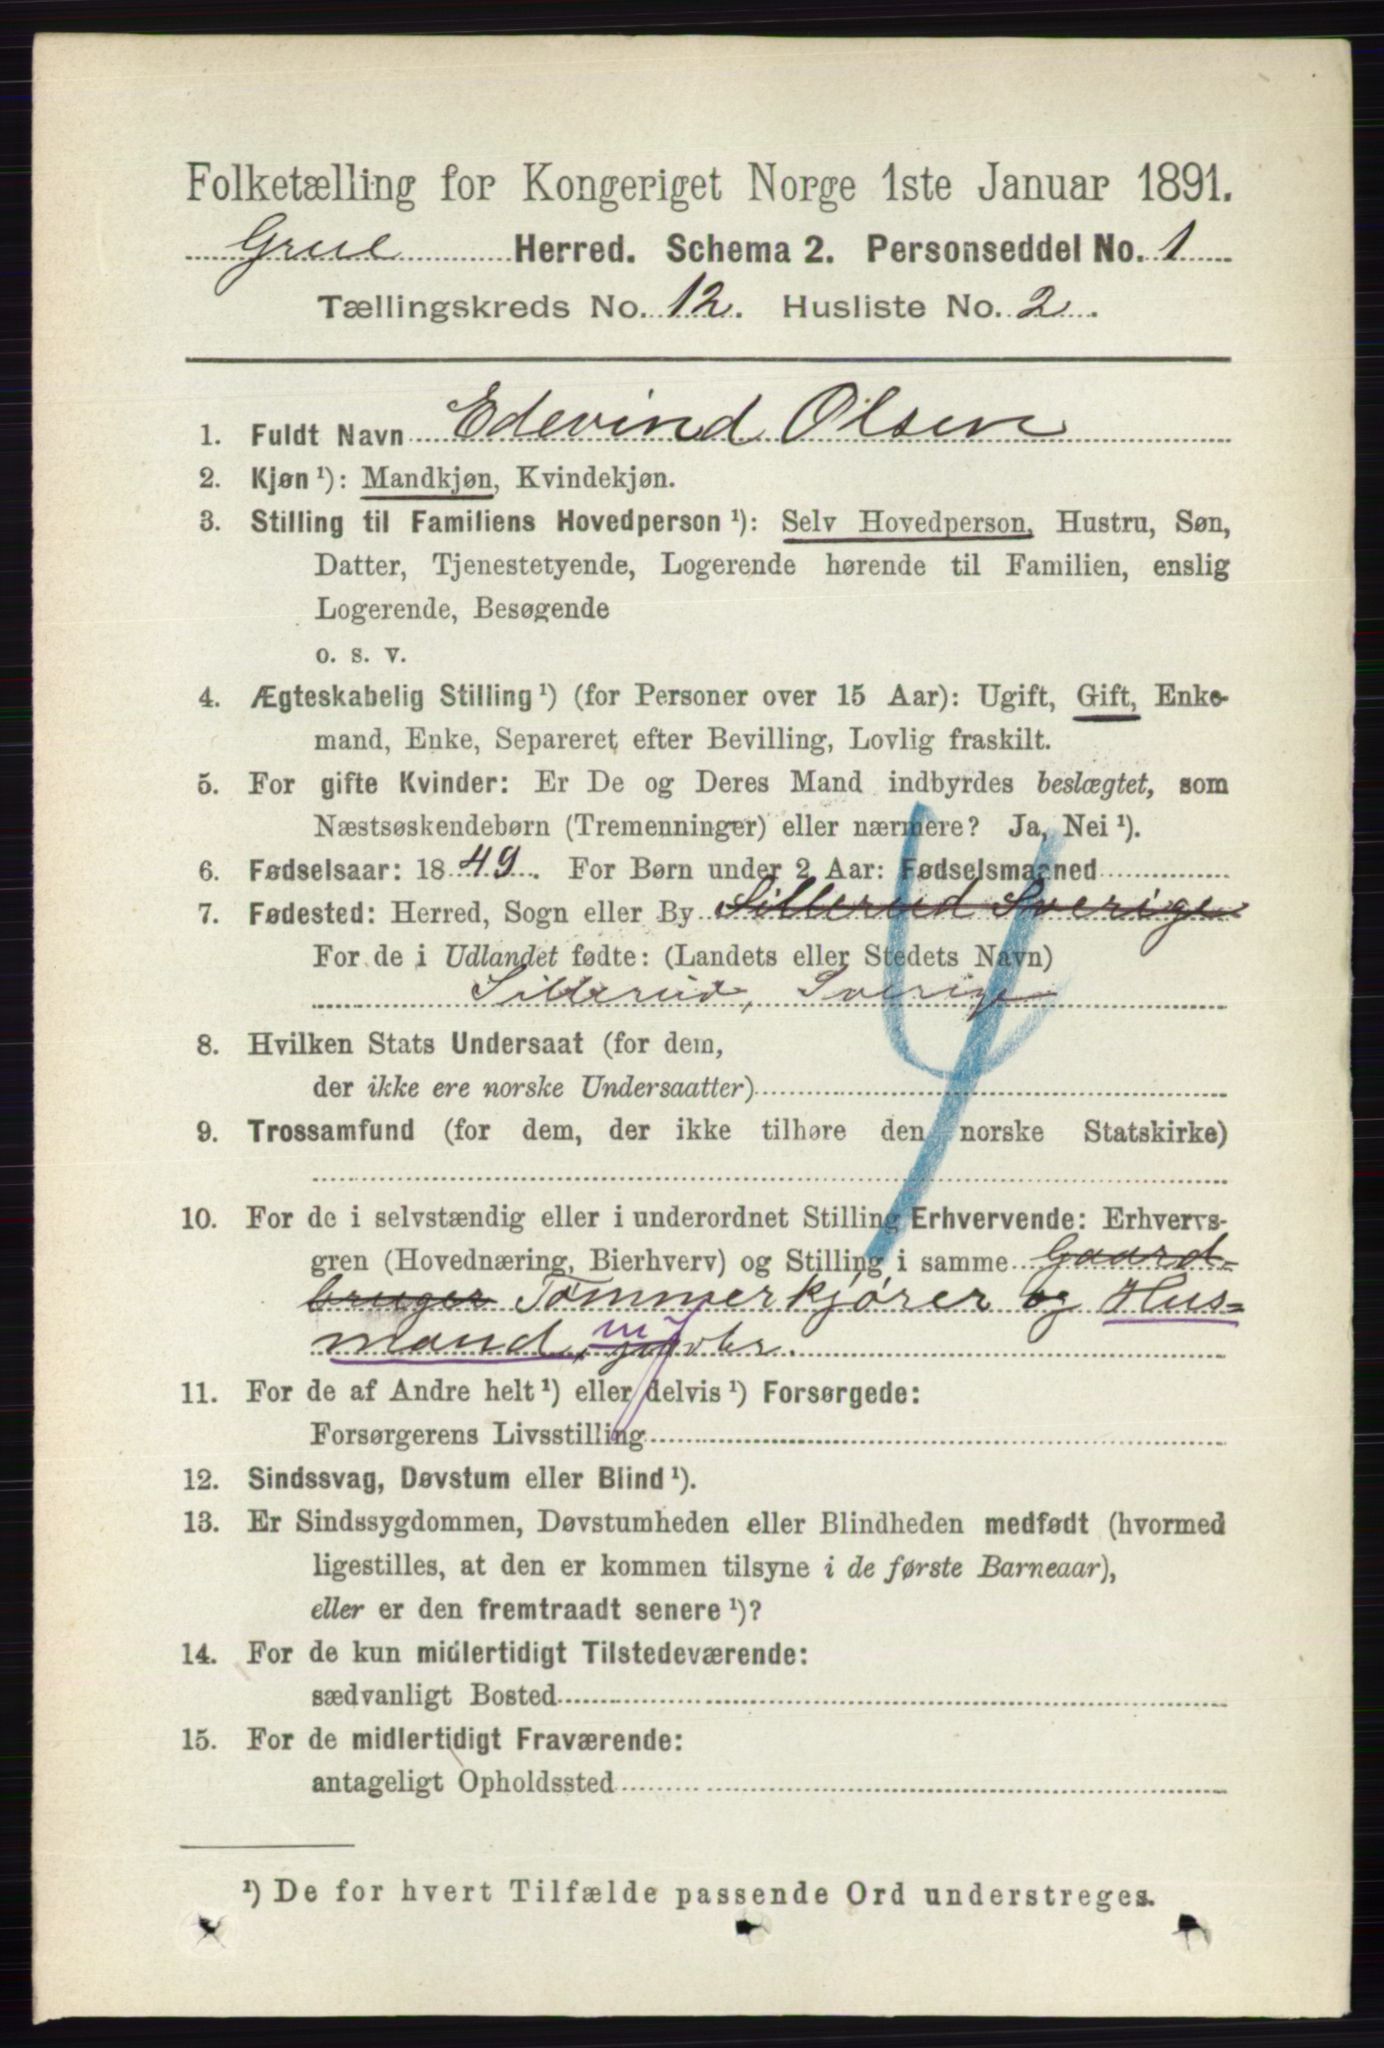 Folketælling for Kongeriget Norge 1ste Januar 1891.
Grue Herred. Schema 2. Personseddel No. 1
Tællingskreds No. 12. Husliste No. 2.
1. Fuldt Navn Edevind Olsen
2. Kjøn ¹): Mandkjøn, Kvindekjøn.
3. Stilling til Familiens Hovedperson ¹): Selv Hovedperson, Hustru, Søn,
Datter, Tjenestetyende, Logerende hørende til Familien, enslig
Logerende, Besøgende
o. s. v.
4. Ægteskabelig Stilling ¹) (for Personer over 15 Aar): Ugift, Gift, Enke-
mand, Enke, Separeret efter Bevilling, Lovlig fraskilt.
5. For gifte Kvinder: Er De og Deres Mand indbyrdes beslægtet, som
Næstsøskendebørn (Tremenninger) eller nærmere? Ja, Nei ¹).
6. Fødselsaar: 1849. For Børn under 2 Aar: Fødselsmaaned
7. Fødested: Herred, Sogn eller By Sillerud Sverige
For de i Udlandet fødte: (Landets eller Stedets Navn)
Sillerud, Sverige
8. Hvilken Stats Undersaat (for dem,
der ikke ere norske Undersaatter)
9. Trossamfund (for dem, der ikke tilhøre den norske Statskirke)
10. For de i selvstændig eller i underordnet Stilling Erhvervende: Erhvervs-
gren (Hovednæring, Bierhverv) og Stilling i samme Gaard-
bruger Tømmerkjører og Hus=
mand, m/
11. For de af Andre helt ¹) eller delvis ¹) Forsørgede:
Forsørgerens Livsstilling
12. Sindssvag, Døvstum eller Blind ¹).
13. Er Sindssygdommen, Døvstumheden eller Blindheden medfødt (hvormed
ligestilles, at den er kommen tilsyne i de første Barneaar),
eller er den fremtraadt senere ¹)?
14. For de kun midlertidigt Tilstedeværende:
sædvanligt Bosted
15. For de midlertidigt Fraværende:
antageligt Opholdssted
¹) De for hvert Tilfælde passende Ord understreges.